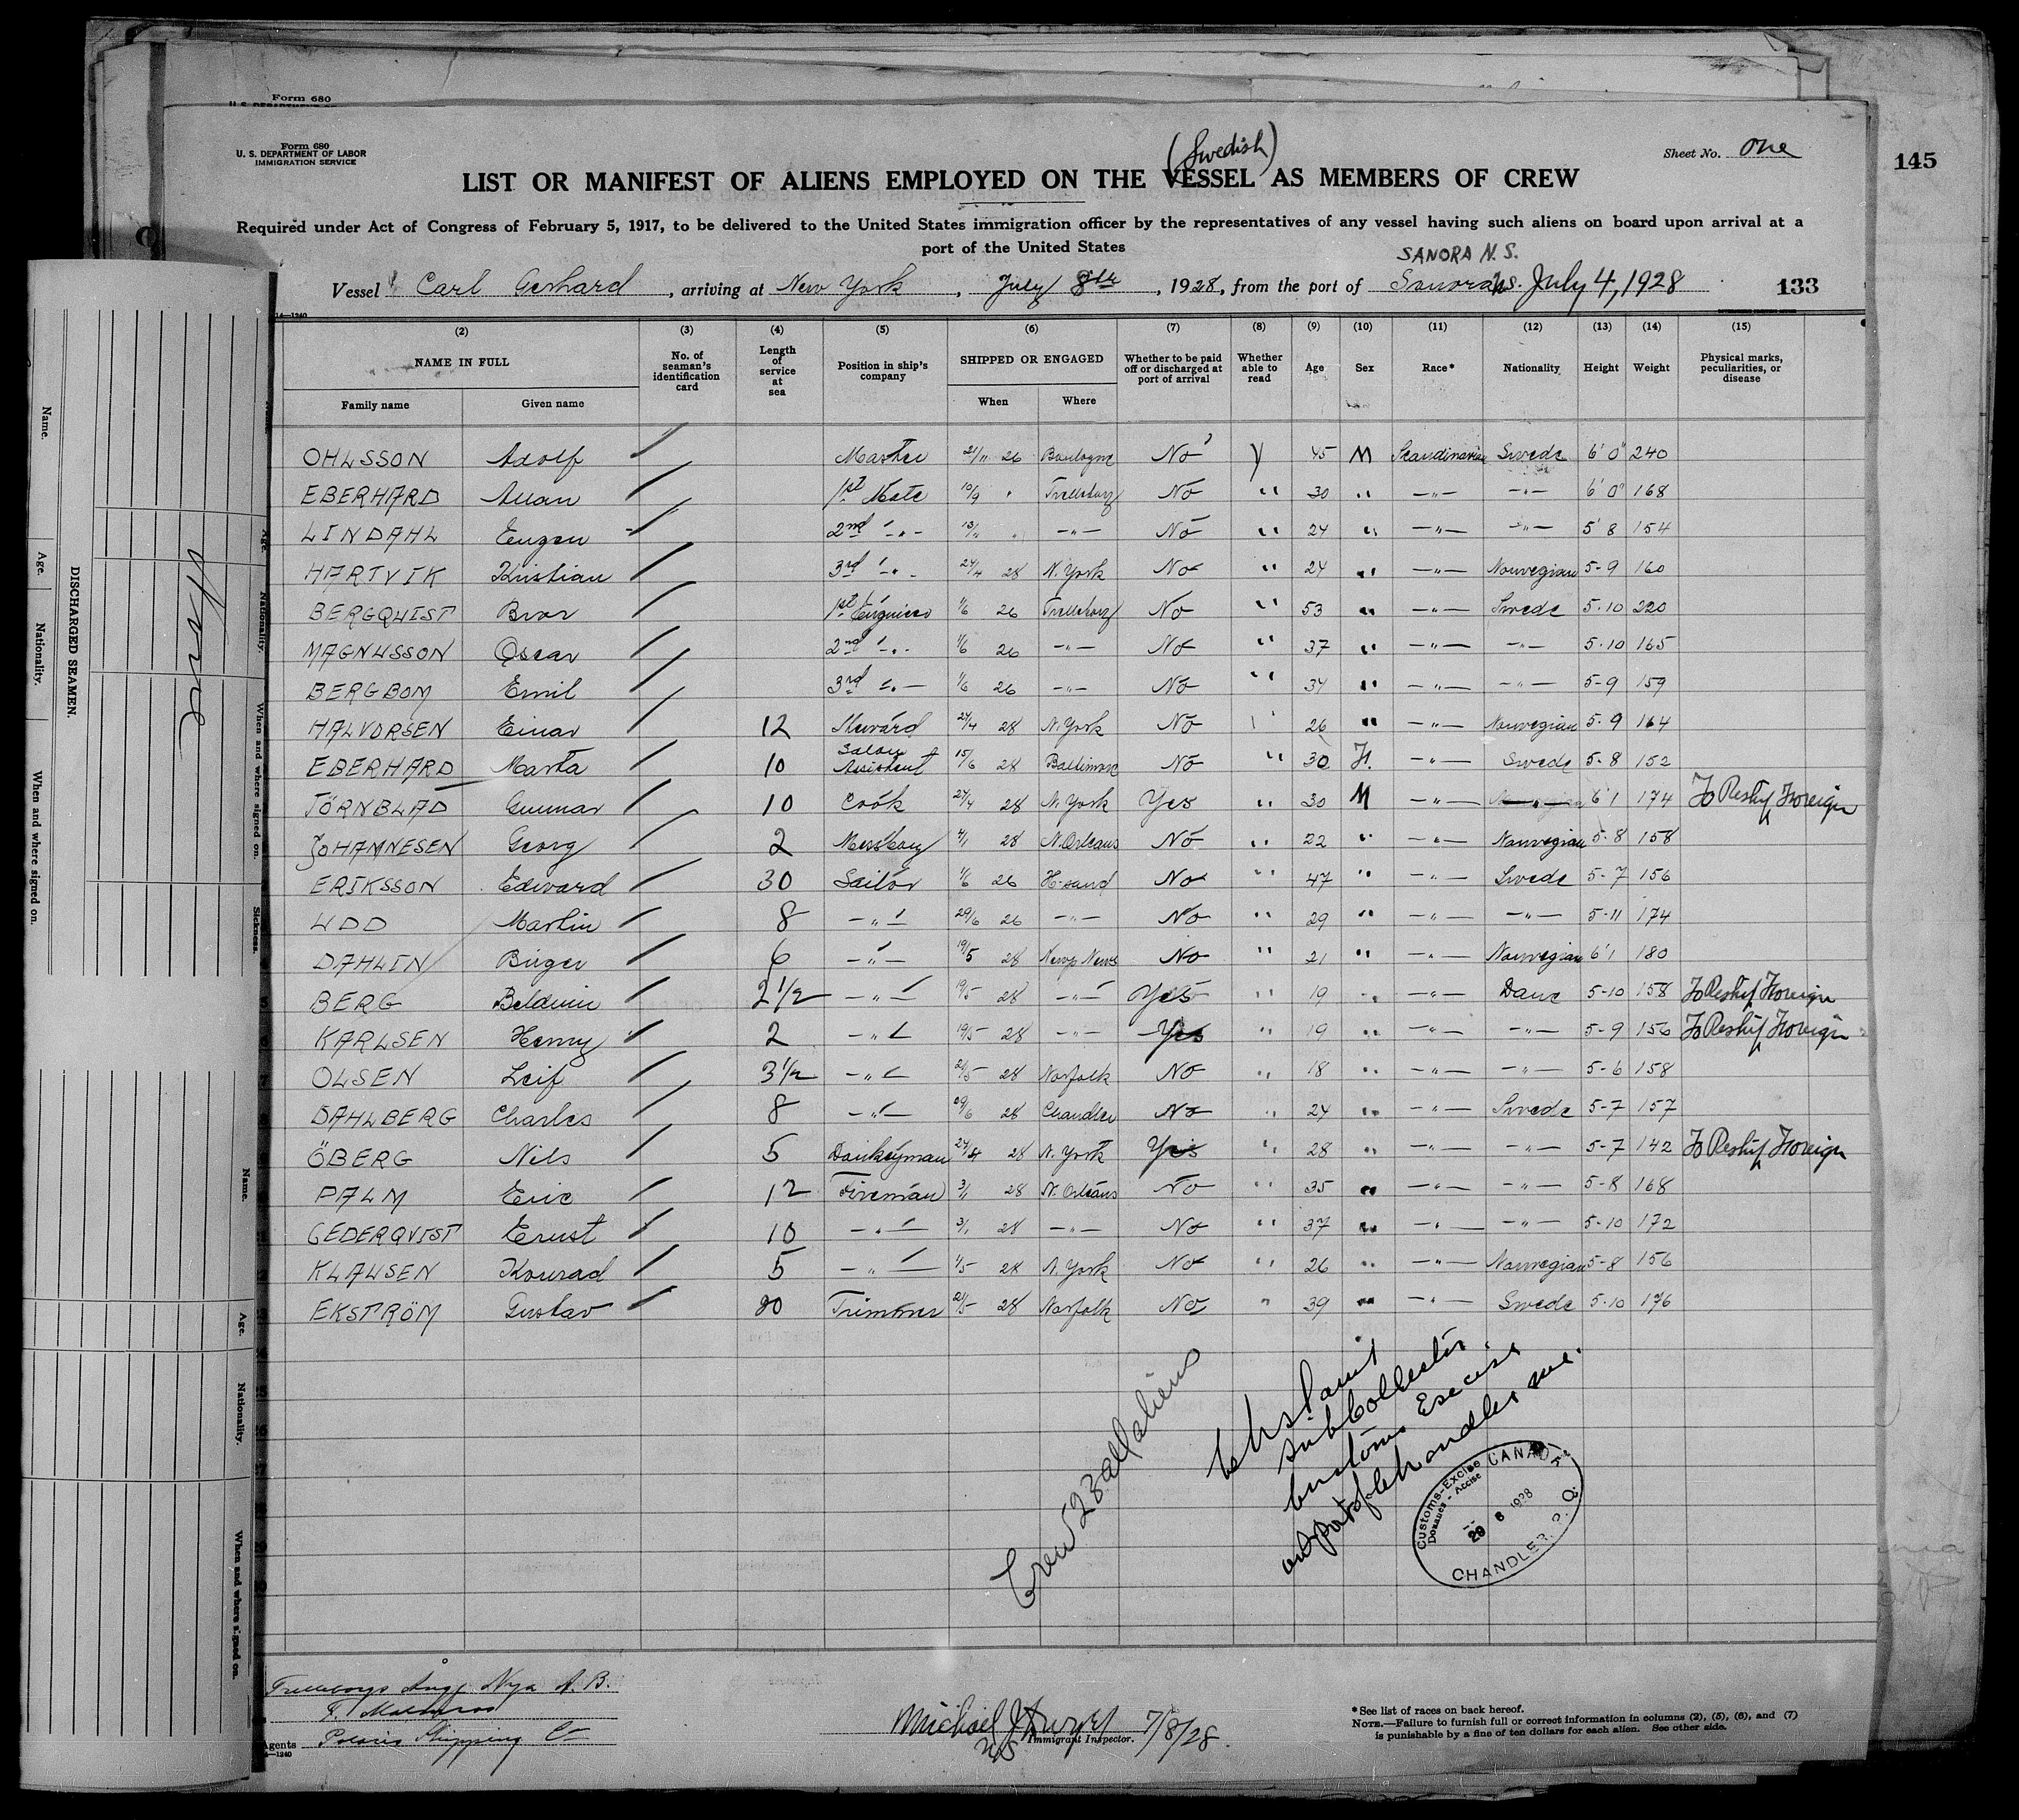 Form 680
U. S. DEPARTMENT OF LABOR
Form 680
U. S. DEPARTMENT OF LABOR
IMMIGRATION SERVICE
(Swedish)
Sheet No. one
145
LIST OR MANIFEST OF ALIENS EMPLOYED ON THE VESSEL AS MEMBERS OF CREW
Required under Act of Congress of February 5, 1917, to be delivered to the United States immigration officer by the representatives of any vessel having such aliens on board upon arrival at a
port of the United States
SANORA N.S.
Vessel Carl Gerhard, arriving at New York, July 8th, 1928, from the port of Sonora N.S. July 4, 1928
133
14—1240
(2) (3) (4) (5) (6) (7) (8) (9) (10) (11) (12) (13) (14) (15)
NAME IN FULL No. of seaman's identification card Length of service at sea Position in ship's company SHIPPED OR ENGAGED Whether to be paid off or discharged at port of arrival Whether able to read Age Sex Race* Nationality Height Weight Physical marks, peculiarities, or disease
Family name Given name When Where
OHLSSON Adolf Master 21/11 26 Boulogne No y 45 M Scandinavian Swede 6'0" 240
EBERHARD Allan 1st Mate 10/9 " Trelleborg No " 30 " —"— —"— 6'0" 168
LINDAHL Eugen 2nd —"— 13/11 " —"— No " 24 " —"— —"— 5'8 154
HARTVIK Kristian 3rd —"— 24/4 28 N. York No " 24 " —"— Norwegian 5-9 160
BERGQUIST Bror 1st Engineer 1/6 26 Trelleborg No " 53 " —"— Swede 5-10 220
MAGNUSSON Oscar 2nd —"— 1/6 26 —"— No " 37 " —"— —"— 5-10 165
BERGBOM Emil 3rd —"— 1/6 26 —"— No " 34 " —"— —"— 5-9 159
HALVORSEN Einar 12 Steward 24/4 28 N. York No " 26 " —"— Norwegian 5-9 164
EBERHARD Marta 10 Saloon Assistent 15/6 28 Baltimore No " 30 F. —"— Swede 5-8 152
TÖRNBLAD Gunnar 10 Cook 27/4 28 N. York Yes " 30 M —"— —"— 6'1 174 To Reship Foreign
JOHANNESEN Georg 2 Messboy 4/1 28 N. Orleans No " 22 " —"— Norwegian 5-8 158
ERIKSSON Edward 30 Sailor 1/6 26 H-sand No " 47 " —"— Swede 5-7 156
UDD Martin 8 —"— 29/6 26 —"— No " 29 " —"— —"— 5-11 174
DAHLIN Birger 6 —"— 19/5 28 Newp News No " 21 " —"— Norwegian 6'1 180
BERG Beldwin 2 1/2 —"— 19/5 28 —"— Yes " 19 " —"— Dane 5-10 158 To Reship Foreign
KARLSEN Henry 2 —"— 19/5 28 —"— Yes " 19 " —"— —"— 5-9 156 To Reship Foreign
OLSEN Leif 3 1/2 —"— 21/5 28 Norfolk No " 18 " —"— —"— 5-6 158
DAHLBERG Charles 8 —"— 29/6 28 Chandler No " 24 " —"— Swede 5-7 157
ÖBERG Nils 5 Donkeyman 24/4 28 N. York Yes " 28 " —"— —"— 5-7 142 To Reship Foreign
PALM Eric 12 Fireman 3/1 28 N. Orleans No " 35 " —"— —"— 5-8 168
CEDERQVIST Ernst 10 —"— 3/1 28 —"— No " 37 " —"— —"— 5-10 172
KLAUSEN Konrad 5 —"— 1/5 28 N. York No " 26 " —"— Norwegian 5-8 156
EKSTRÖM Gustav 20 Trimmer 21/5 28 Norfolk No " 39 " —"— Swede 5-10 176
Crew 23 all aliens
Sub Collector
Customs Excise
Port of Chandler Que.
Customs-Excise CANADA
Douanes - Accise
29 6 1928
CHANDLER. P. Q.
Trelleborgs Ångf Nya A. B.
Agents Polaris Shipping Co
14—1240
Michael J. Dwyer 7/8/28.
Immigrant Inspector.
*See list of races on back hereof.
NOTE.—Failure to furnish full or correct information in columns (2), (5), (6), and (7)
is punishable by a fine of ten dollars for each alien. See other side.
DISCHARGED SEAMEN.
Name. Age. Nationality. When and where signed on.
Age. Nationality. When and where signed on. Sickness.
None
Name. Age. Nationality. When and where signed on.